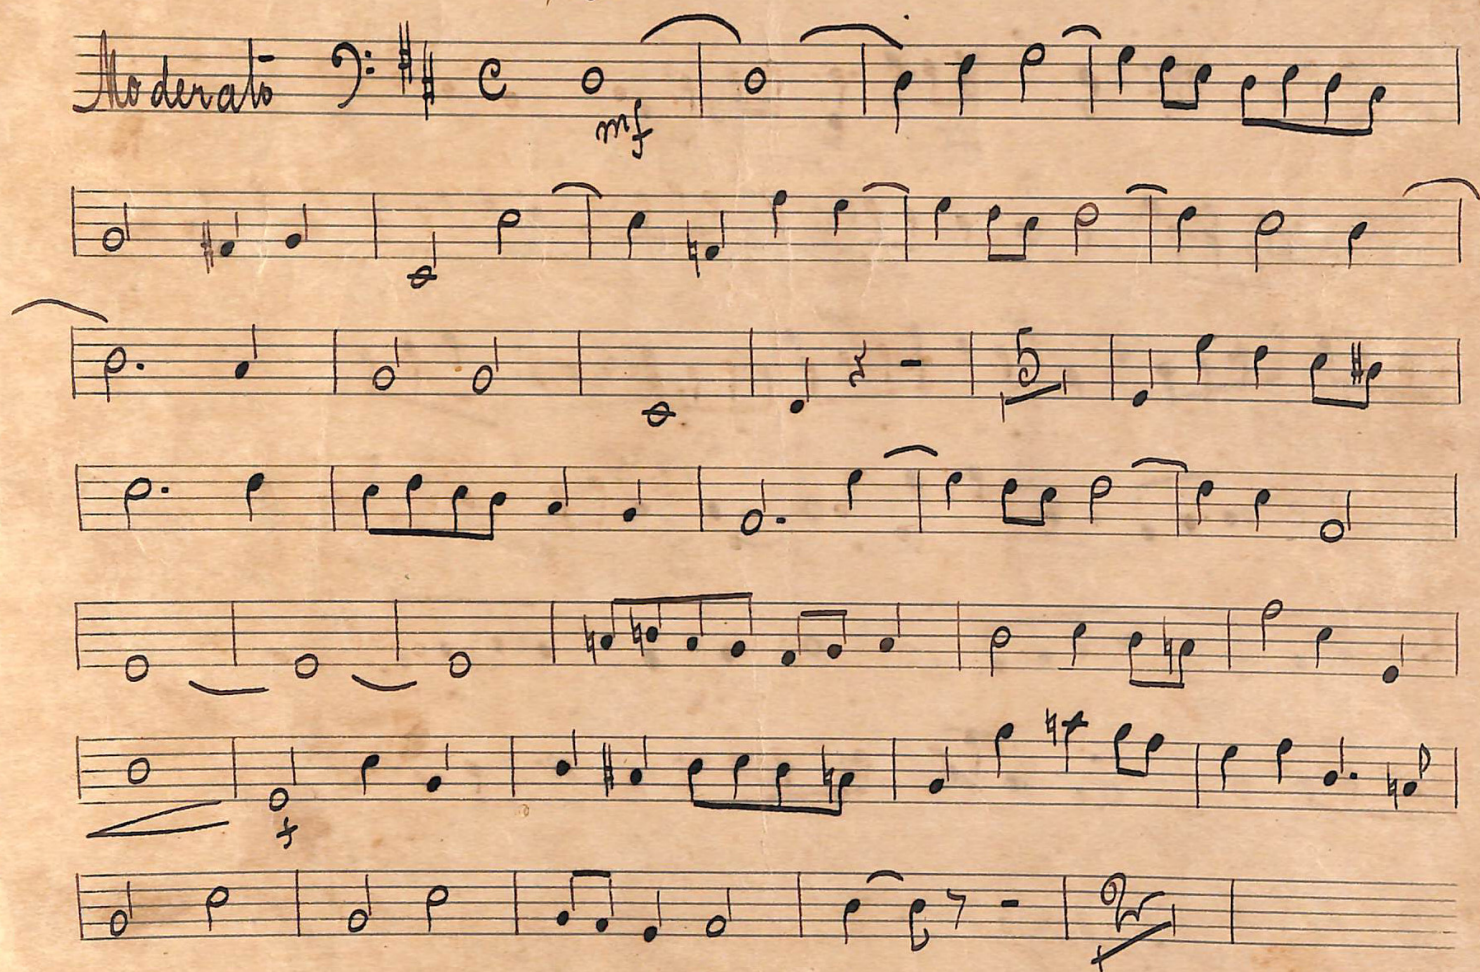 Moderato
mf
5
f
2